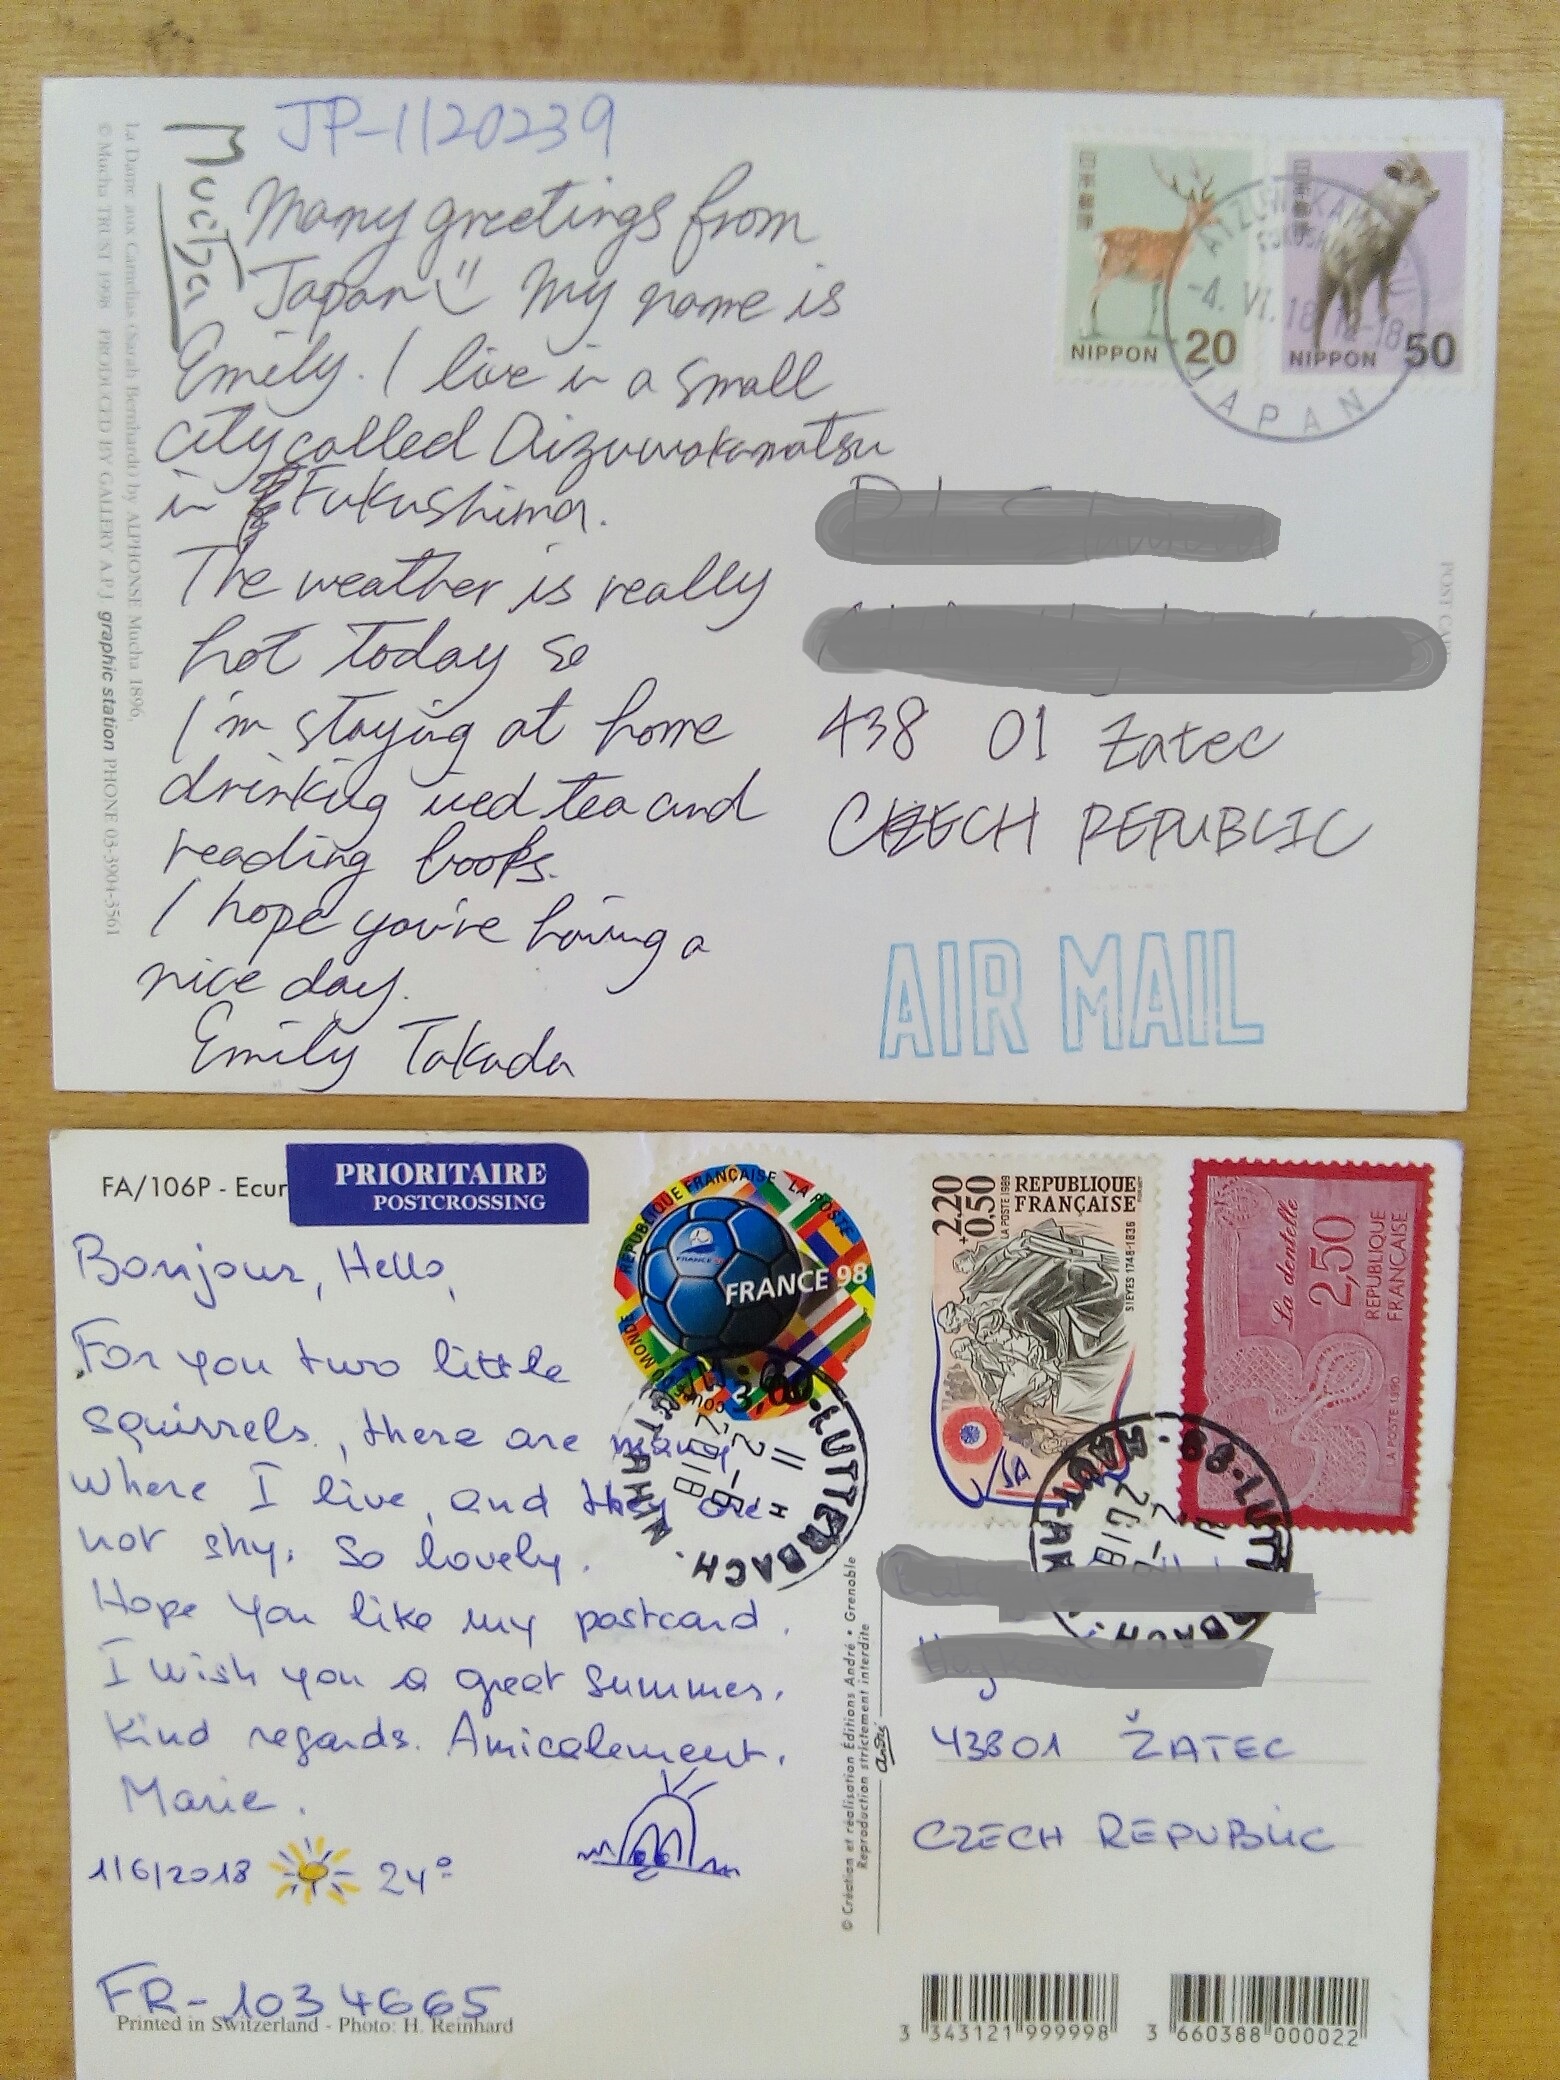 JP-1120239
Mucha
Many greetings from
Japan My name is
Emily. I live in a small
city called Aizuwakamatsu
in Fukushima.
The weather is really
hot today so
I'm staying at home
drinking iced tea and
reading books.
I hope you're having a
nice day.
Emily Takada
La Dame aux Camelias (Sarah Bernhardt) by ALPHONSE Mucha 1896.
© Mucha TRUST 1998 PRODUCED BY GALLERY A.P.J. graphic station PHONE 03-3901-3561
日本郵便
NIPPON 20
日本郵便
NIPPON 50
AIZUWAKAMATSU
FUKUSHIMA
-4. VI. 18 12-18
JAPAN
POST CARD
438 01 Zatec
CZECH REPUBLIC
AIR MAIL
FA/106P - Ecur
PRIORITAIRE
POSTCROSSING
Bonjour, Hello,
For you two little
squirrels, there are many
where I live, and they are
not shy. So lovely.
Hope you like my postcard.
I wish you a great summer.
Kind regards. Amicalement.
Marie.
1/6/2018 24°
FR-1034665
Printed in Switzerland - Photo: H. Reinhard
REPUBLIQUE FRANÇAISE LA POSTE
FRANCE 98
MONDE
3,00
2,20
+0,50
REPUBLIQUE
FRANÇAISE
LA POSTE 1989
SIEYES 1748-1836
La dentelle
2,50
REPUBLIQUE
FRANÇAISE
LA POSTE 1990
68-LUTTERBACH
HAUT-RHIN
11 H
2-6
2018
68-LUTTERBACH
2018
© Création et réalisation Éditions André • Grenoble
Reproduction strictement interdite
André
43801 ŽATEC
CZECH REPUBLIC
3 343121 999998
3 660388 000022